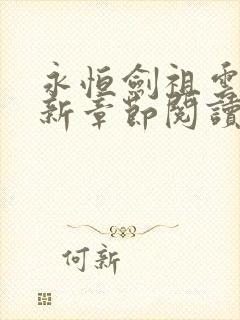 永恒劍祖雲
新章節閱讀
何新